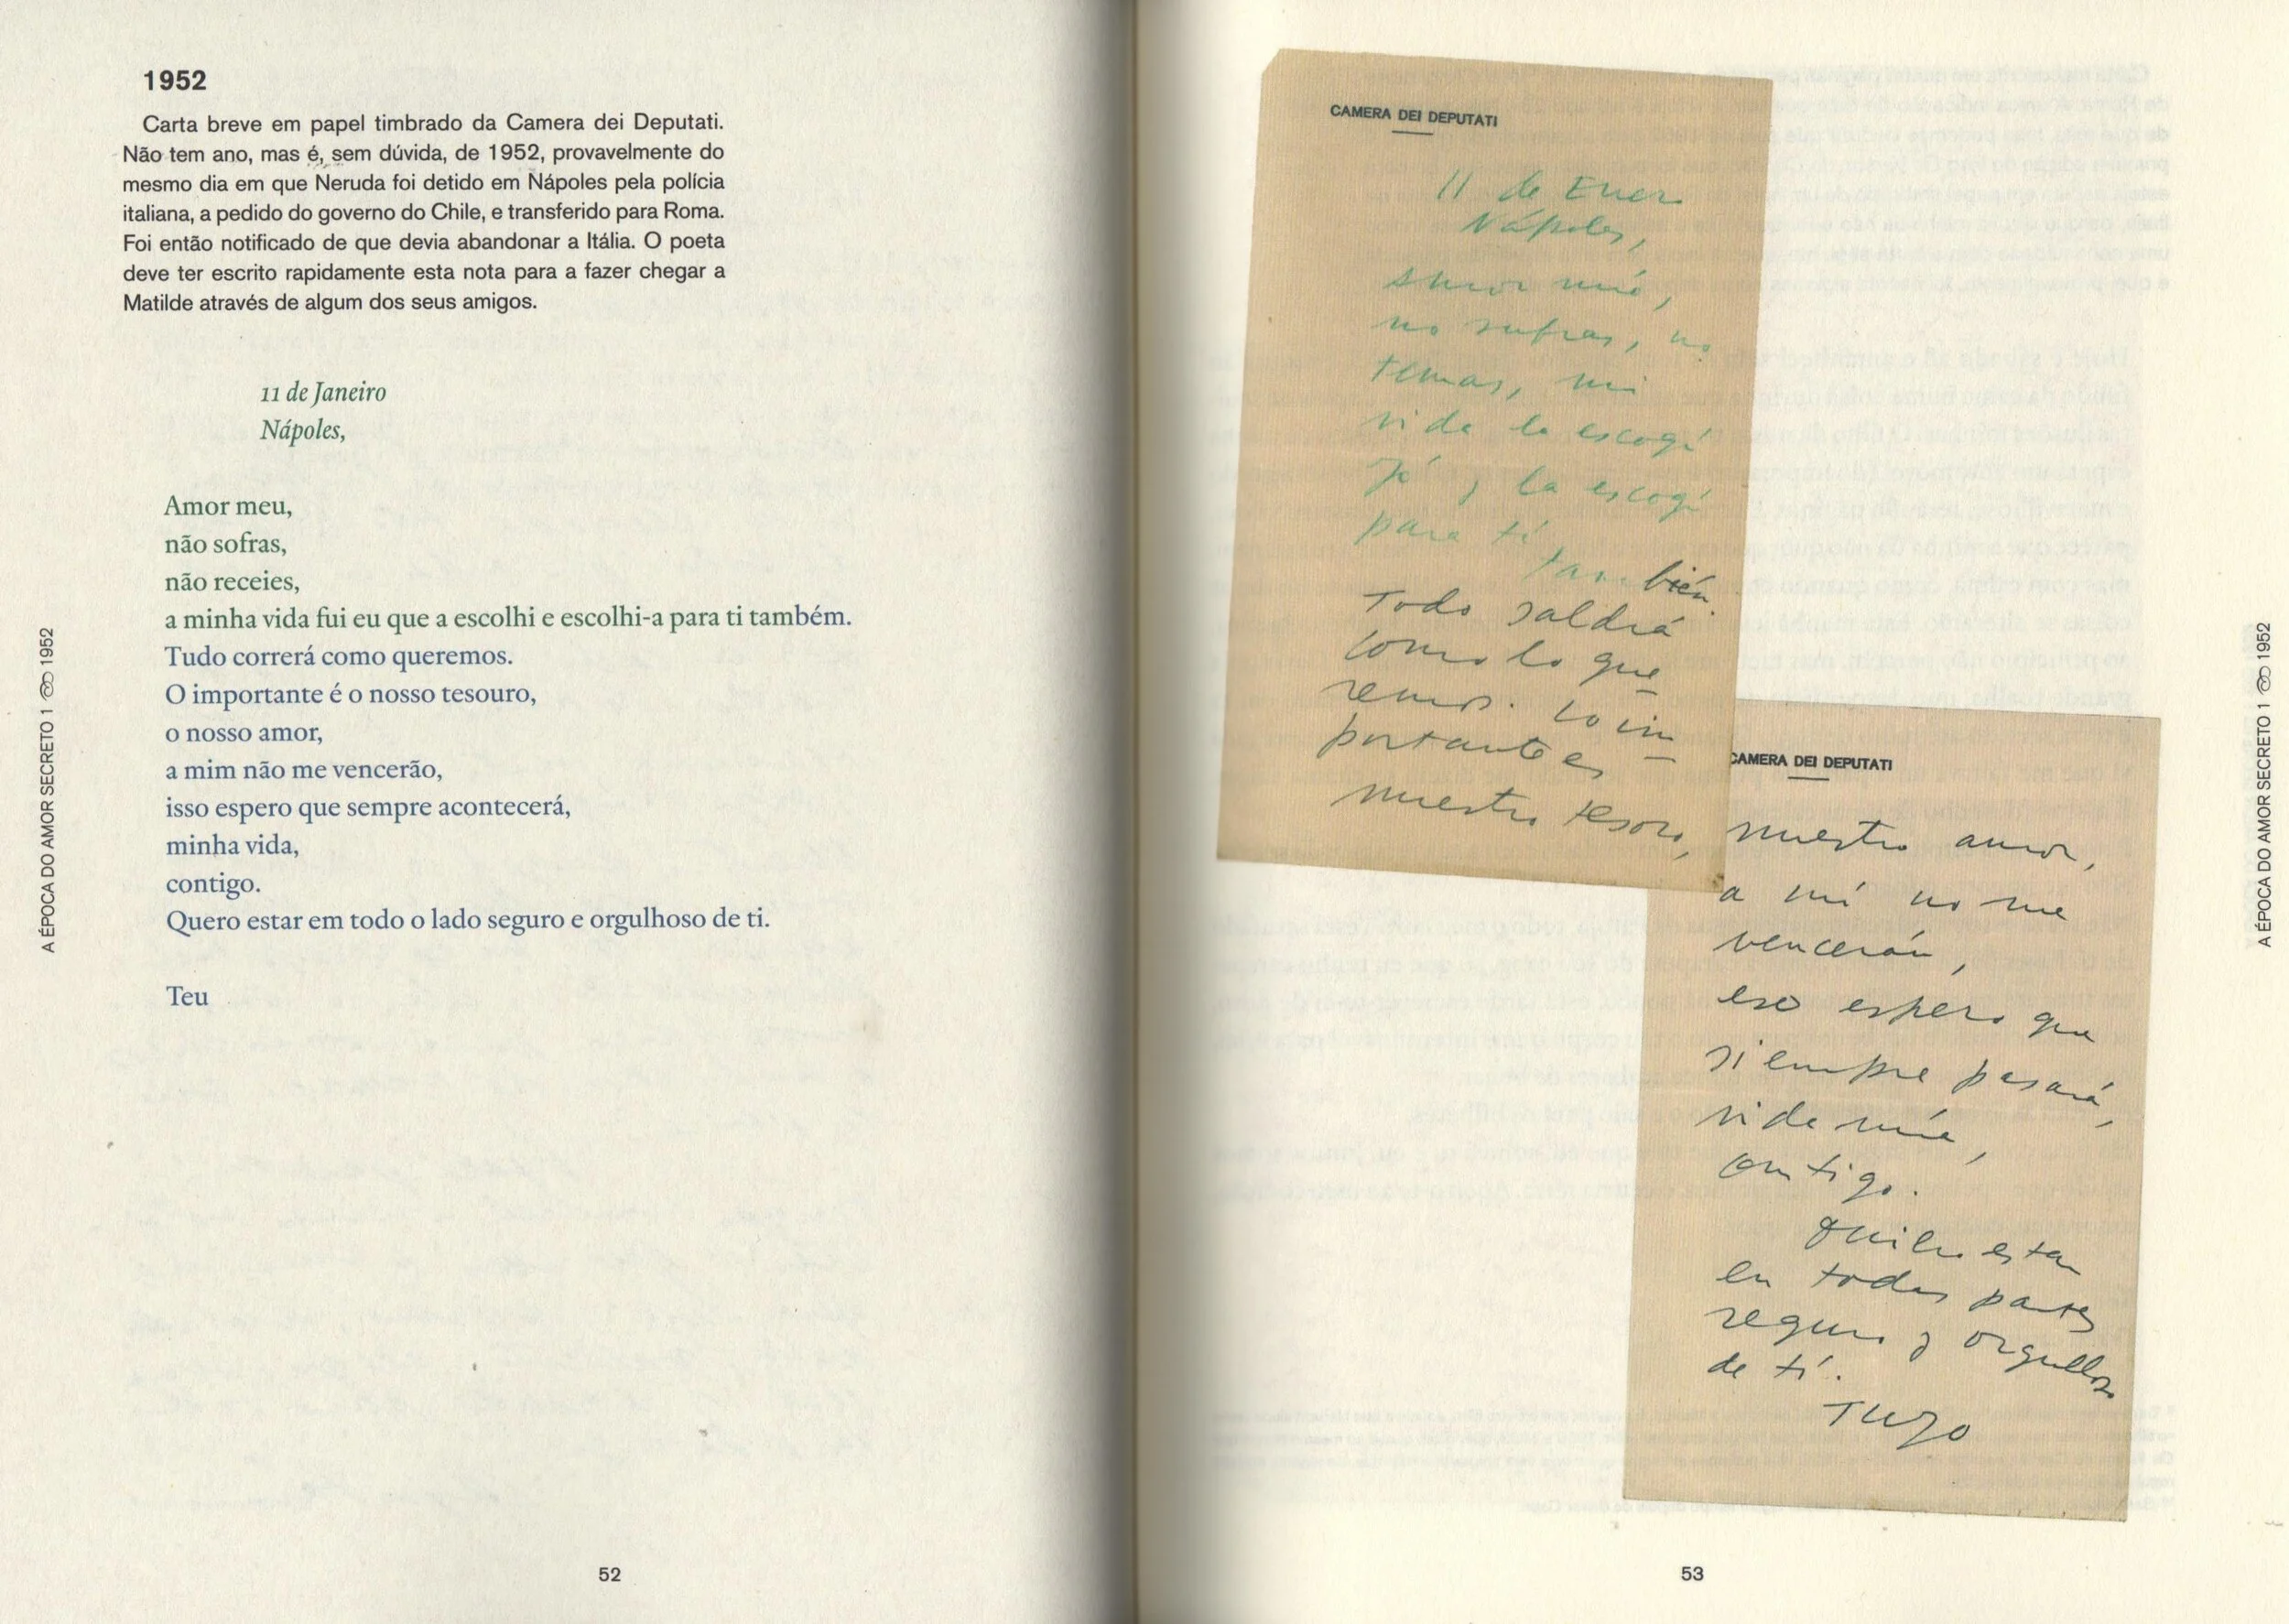 1952
Carta breve em papel timbrado da Camera dei Deputati.
Não tem ano, mas é, sem dúvida, de 1952, provavelmente do
mesmo dia em que Neruda foi detido em Nápoles pela polícia
italiana, a pedido do governo do Chile, e transferido para Roma.
Foi então notificado de que devia abandonar a Itália. O poeta
deve ter escrito rapidamente esta nota para a fazer chegar a
Matilde através de algum dos seus amigos.
11 de Janeiro
Nápoles,
Amor meu,
não sofras,
não receies,
a minha vida fui eu que a escolhi e escolhi-a para ti também.
Tudo correrá como queremos.
O importante é o nosso tesouro,
o nosso amor,
a mim não me vencerão,
isso espero que sempre acontecerá,
minha vida,
contigo.
Quero estar em todo o lado seguro e orgulhoso de ti.
Teu
A ÉPOCA DO AMOR SECRETO 1 1952
52
CAMERA DEI DEPUTATI
11 de Enero
Nápoles,
Amor mío,
no sufras, no
temas, mi
vida la escogí
yó y la escogí
para tí
también.
Todo saldrá
como lo que
remos. Lo im
portante es
nuestro tesoro,
CAMERA DEI DEPUTATI
nuestro amor,
a mí no me
vencerán,
eso espero que
siempre pasará,
vida mía,
contigo.
Quiero estar
en todas partes
seguro y orgulloso
de tí.
Tuyo
A ÉPOCA DO AMOR SECRETO 1 1952
53